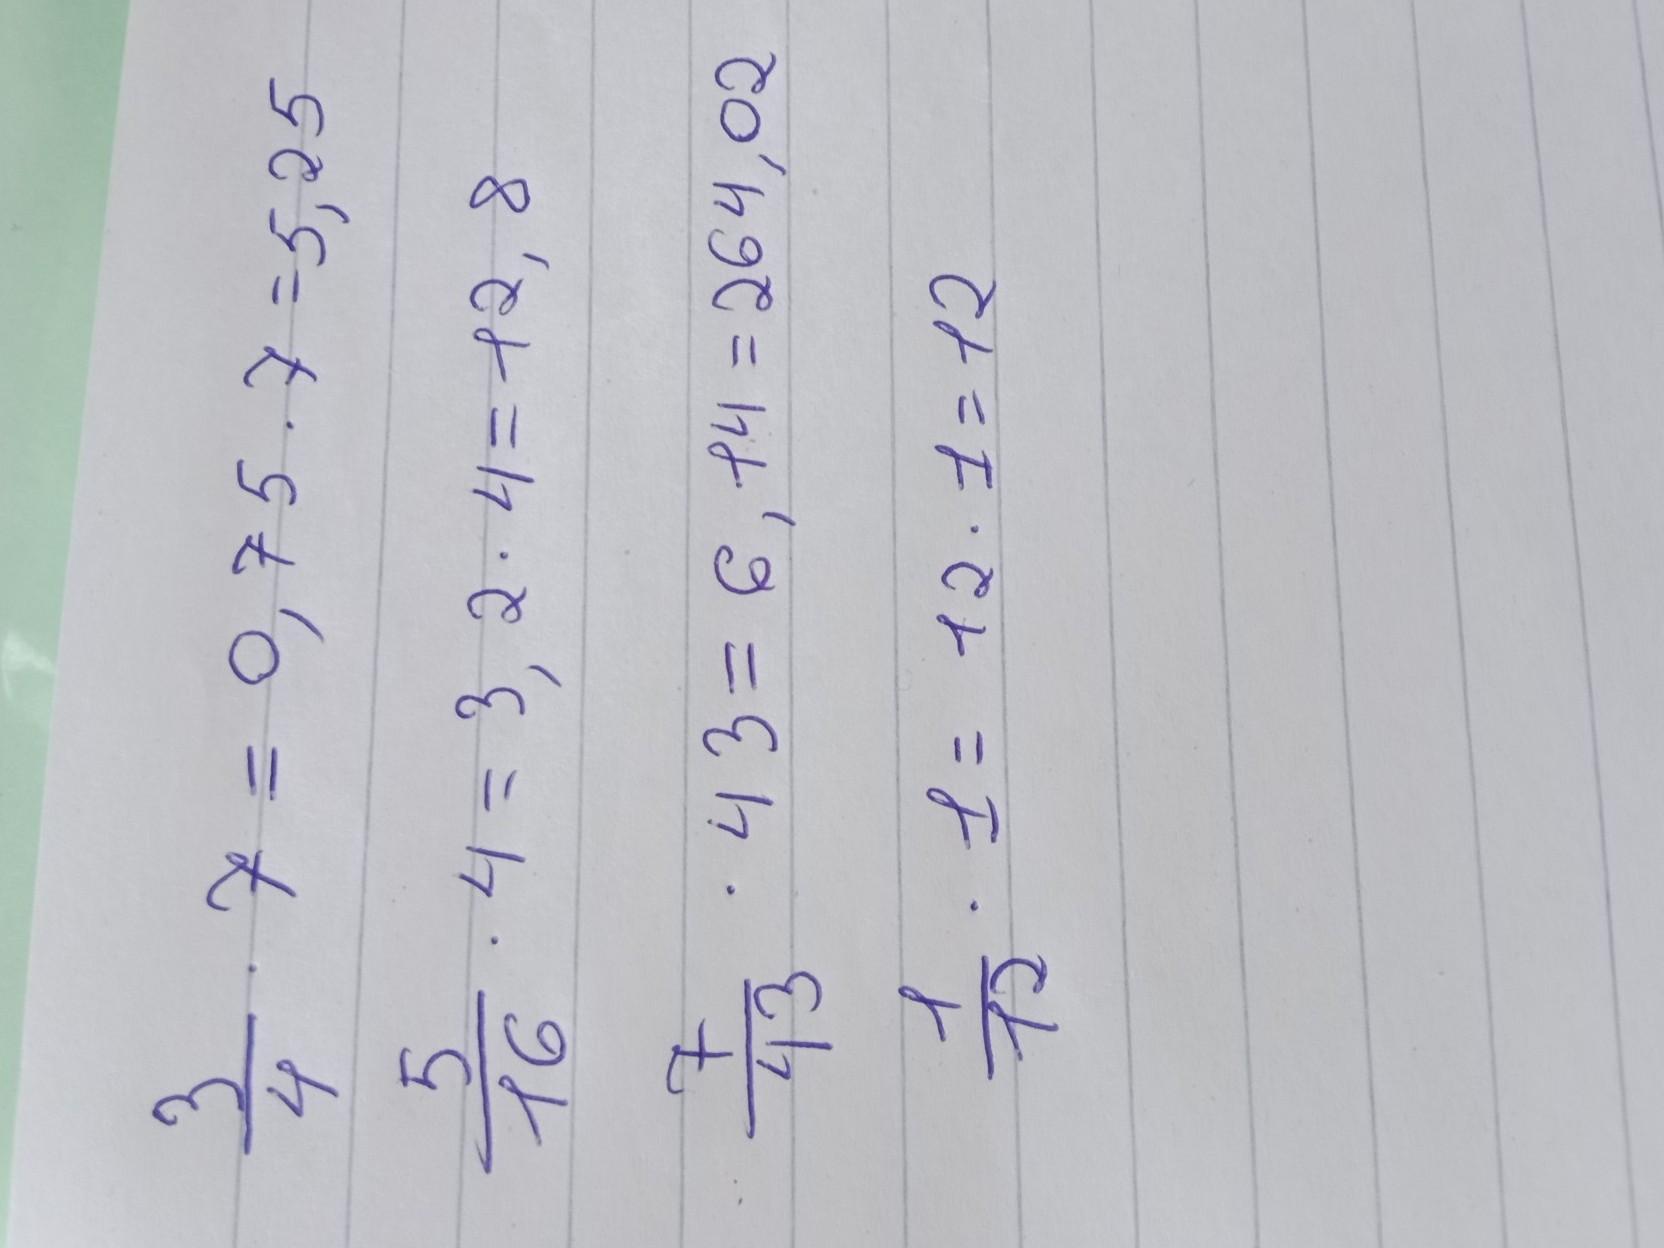 3/4 · 7 = 0,75 · 7 = 5,25
5/16 · 4 = 3,2 · 4 = 12,8
7/43 · 43 = 6,14 = 264,02
1/12 · 1 = 12 · 1 = 12